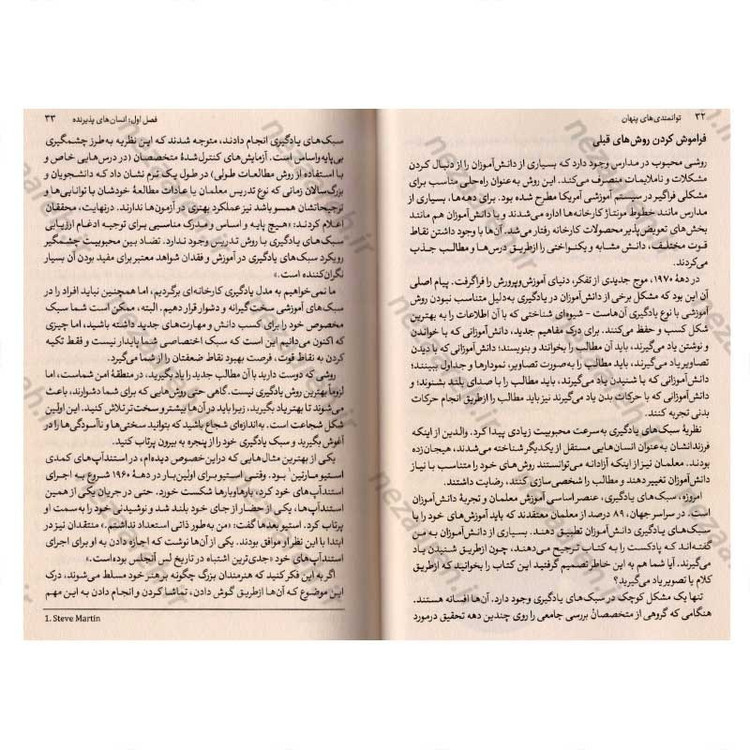 ۳۲ توانمندی‌های پنهان
فراموش کردن روش‌های قبلی
روشی محبوب در مدارس وجود دارد که بسیاری از دانش‌آموزان را از دنبال کردن
مشکلات و ناملایمات منصرف می‌کند. این روش به‌عنوان راه‌حلی مناسب برای
مشکلی فراگیر در سیستم آموزشی آمریکا مطرح شده بود. برای دهه‌ها، بسیاری از
مدارس مانند خطوط مونتاژ کارخانه‌ها اداره می‌شدند و با دانش‌آموزان هم مانند
بخش‌های تعویض‌پذیر محصولات کارخانه رفتار می‌شد. آن‌ها با وجود داشتن نقاط
قوت مختلف، دانش مشابه و یکنواختی را ازطریق درس‌ها و مطالب جذب
می‌کردند.
در دههٔ ۱۹۷۰، موج جدیدی از تفکر، دنیای آموزش‌وپرورش را فراگرفت. پیام اصلی
آن این بود که مشکل برخی از دانش‌آموزان در یادگیری به‌دلیل متناسب نبودن روش
آموزشی با نوع یادگیری آن‌هاست - شیوه‌ای شناختی که با آن اطلاعات را به بهترین
شکل کسب و حفظ می‌کنند. برای درک مفاهیم جدید، دانش‌آموزانی که با خواندن
و نوشتن یاد می‌گیرند، باید آن مطالب را بخوانند و بنویسند؛ دانش‌آموزانی که با دیدن
تصاویر یاد می‌گیرند، باید مطالب را به‌صورت تصاویر، نمودارها و جداول ببینند؛
دانش‌آموزانی که با شنیدن یاد می‌گیرند، باید مطالب را با صدای بلند بشنوند؛ و
دانش‌آموزانی که با حرکات بدن یاد می‌گیرند نیز باید مطالب را ازطریق انجام حرکات
بدنی تجربه کنند.
نظریهٔ سبک‌های یادگیری به‌سرعت محبوبیت زیادی پیدا کرد. والدین از اینکه
فرزندانشان به‌عنوان انسان‌هایی مستقل از یکدیگر شناخته می‌شدند، هیجان‌زده
بودند. معلمان نیز از اینکه آزادانه می‌توانستند روش‌های خود را متناسب با نیاز
دانش‌آموزان تغییر دهند و مطالب را شخصی‌سازی کنند، رضایت داشتند.
امروزه، سبک‌های یادگیری، عنصر اساسی آموزش معلمان و تجربهٔ دانش‌آموزان
است. در سراسر جهان، ۸۹ درصد از معلمان معتقدند که باید آموزش‌های خود را با
سبک‌های یادگیری دانش‌آموزان تطبیق دهند. بسیاری از دانش‌آموزان به من
گفته‌اند که پادکست را به کتاب ترجیح می‌دهند، چون ازطریق شنیدن یاد
می‌گیرند. آیا شما هم به این خاطر تصمیم گرفتید این کتاب را بخوانید که ازطریق
کلام یا تصویر یاد می‌گیرید؟
تنها یک مشکل کوچک در سبک‌های یادگیری وجود دارد. آن‌ها افسانه هستند.
هنگامی که گروهی از متخصصان بررسی جامعی را روی چندین دهه تحقیق درمورد
فصل اول: انسان‌های پذیرنده ۳۳
سبک‌های یادگیری انجام دادند، متوجه شدند که این نظریه به‌طرز چشمگیری
بی‌پایه‌واساس است. آزمایش‌های کنترل‌شدهٔ متخصصان (در درس‌هایی خاص و
با استفاده از روش مطالعات طولی) در طول یک ترم نشان داد که دانشجویان و
بزرگ‌سالان زمانی که نوع تدریس معلمان یا عادات مطالعهٔ خودشان با توانایی‌ها و
ترجیحاتشان همسو باشد نیز عملکرد بهتری در آزمون‌ها ندارند. درنهایت، محققان
اعلام کردند: «هیچ پایه و اساس و مدرک مناسبی برای توجیه ادغام ارزیابی
سبک‌های یادگیری با روش تدریس وجود ندارد. تضاد بین محبوبیت چشمگیر
رویکرد سبک‌های یادگیری در آموزش و فقدان شواهد معتبر برای مفید بودن آن بسیار
نگران‌کننده است.»
ما نمی‌خواهیم به مدل یادگیری کارخانه‌ای برگردیم، اما همچنین نباید افراد را در
سبک‌های آموزشی سخت‌گیرانه و دشوار قرار دهیم. البته، ممکن است شما سبک
مخصوص خود را برای کسب دانش و مهارت‌های جدید داشته باشید، اما چیزی
که اکنون می‌دانیم این است که سبک اختصاصی شما پایدار نیست و فقط تکیه
کردن به نقاط قوت، فرصت بهبود نقاط ضعفتان را از شما می‌گیرد.
روشی که دوست دارید با آن مطالب جدید را یاد بگیرید، در منطقهٔ امن شماست، اما
لزوماً بهترین روش یادگیری نیست. گاهی حتی روش‌هایی که برای شما دشوارند، باعث
می‌شوند تا بهتر یاد بگیرید، زیرا باید در آن‌ها بیشتر و سخت‌تر تلاش کنید. این اولین
شکل شجاعت است. به‌اندازه‌ای شجاع باشید که بتوانید سختی‌ها و ناآسودگی‌ها را در
آغوش بگیرید و سبک یادگیری خود را از پنجره به بیرون پرتاب کنید.
یکی از بهترین مثال‌هایی که دراین‌خصوص دیده‌ام، در استندآپ‌های کمدی
استیو مارتین¹ بود. وقتی استیو برای اولین‌بار در دههٔ ۱۹۶۰ شروع به اجرای
استندآپ‌های خود کرد، بارهاوبارها شکست خورد. حتی در جریان یکی از همین
استندآپ‌ها، یکی از حضار از جای خود بلند شد و نوشیدنی خود را به‌سمت او
پرتاب کرد. استیو بعدها گفت: «من به‌طور ذاتی استعداد نداشتم.» منتقدان نیز در
ابتدا با این نظر او موافق بودند. یکی از آن‌ها نوشت که اجازه دادن به او برای اجرای
استندآپ‌های خود «جدی‌ترین اشتباه در تاریخ لس آنجلس بوده‌است.»
اگر به این فکر کنید که هنرمندان بزرگ چگونه بر هنر خود مسلط می‌شوند، درک
این موضوع که آن‌ها ازطریق گوش دادن، تماشا کردن و انجام دادن به این مهم
1. Steve Martin
nezarah.ir